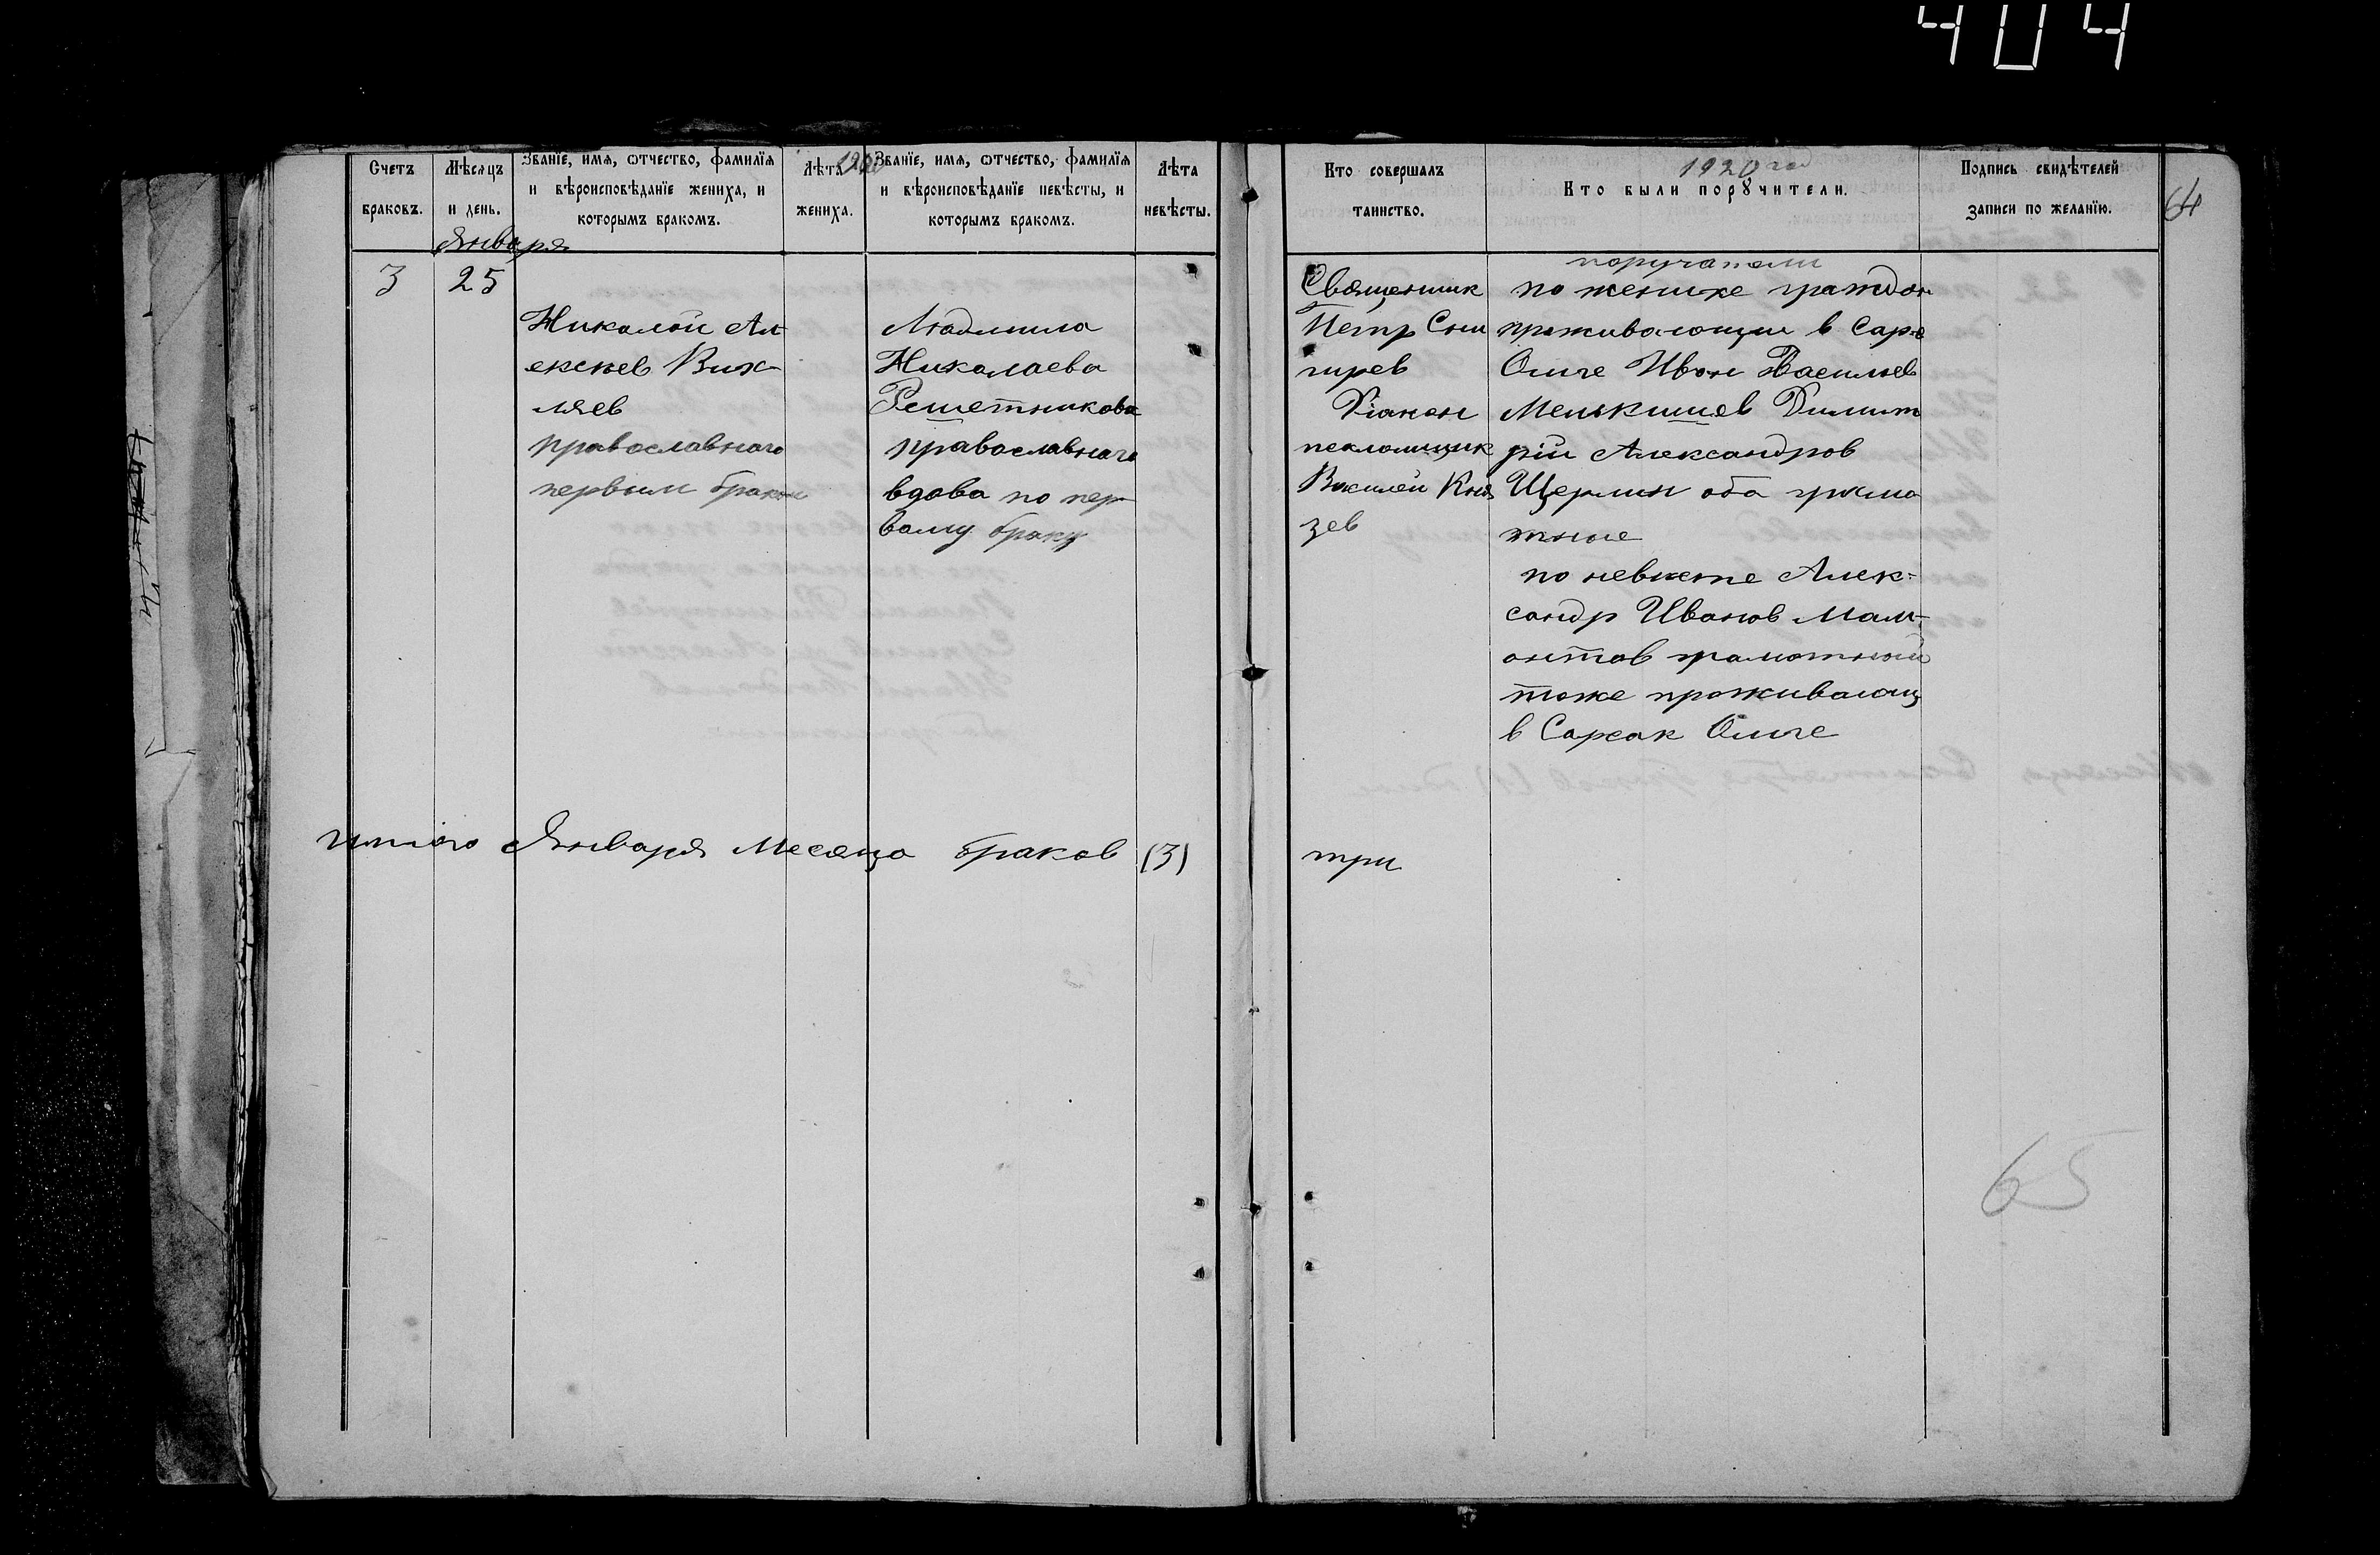 404
Счетъ браковъ.
Мѣсяцъ и день.
Званїе, имя, ѿтчество, фамилїя
и вѣроисповѣданїе жениха, и
которымъ бракомъ.
Лѣта жениха.
Званїе, имя, ѿтчество, фамилїя
и вѣроисповѣданїе невѣсты, и
которымъ бракомъ.
Лѣта невѣсты.
Января
3
25
Николай Ал
ексеев Вих-
ляев
православнаго
первым браком
Людмила
Николаева
Решетникова
православнаго
вдова по пер-
вому браку
итого Января месяца браков (3)
Кто совершалъ
таинство.
1920 год
Кто были порꙋчители.
Подпись свидѣтелей
записи по желанїю.
64
Священник
Петр Сни
гирев
Дiакон
псаломщик
Василей Кня
зев
поручатели
по женихе граждан
проживающии в Сарс
Омге Иван Васильев
Димит
рій Александров
оба грамо
тные
по невесте Алек-
сандр Иванов Мам-
онтов грамотный
тоже проживающ
в Сарсак Омге
три
65